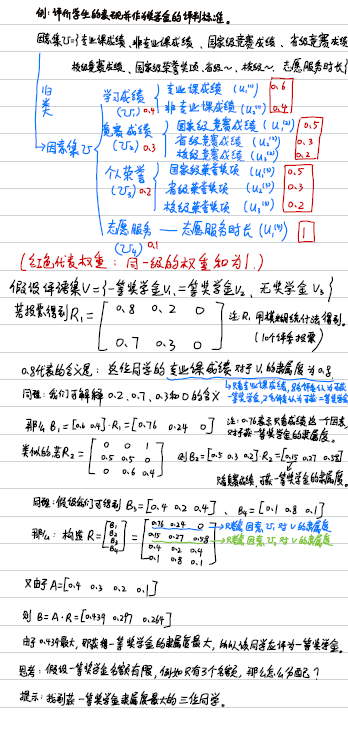 例: 评价学生的表现并作为奖学金的评判标准。
因素集U={专业课成绩、非专业课成绩、国家级竞赛成绩、省级竞赛成绩
校级竞赛成绩、国家级荣誉奖项、省级~、校级~、志愿服务时长}
归类
因素集U
学习成绩 (U₁) 0.4
专业课成绩 (U₁⁽¹⁾) 0.6
非专业课成绩 (U₂⁽¹⁾) 0.4
竞赛成绩 (U₂) 0.3
国家级竞赛成绩 (U₁⁽²⁾) 0.5
省级竞赛成绩 (U₂⁽²⁾) 0.3
校级竞赛成绩 (U₃⁽²⁾) 0.2
个人荣誉 (U₃) 0.2
国家级荣誉奖项 (U₁⁽³⁾) 0.5
省级荣誉奖项 (U₂⁽³⁾) 0.3
校级荣誉奖项 (U₃⁽³⁾) 0.2
志愿服务 — 志愿服务时长 (U₁⁽⁴⁾) 1
(U₄) 0.1
(红色代表权重: 同一级的权重和为1.)
假设评语集V={一等奖学金V₁, 二等奖学金V₂, 无奖学金V₃}
若投票得到R₁=[0.8 0.2 0
0.7 0.3 0]
注: R₁用模糊统计法得到.
(10个评委投票)
0.8代表的含义是: 这位同学的专业课成绩对于V₁的隶属度为0.8
同理: 我们可解释0.2、0.7、0.3和0的含义
那么B₁=[0.6 0.4]·R₁=[0.76 0.24 0]
注: 0.76表示只看成绩这一个因素,
对于获一等奖学金的隶属度。
类似的若R₂=[0 0 1
0.5 0.5 0
0 0.6 0.4]
则B₂=[0.5 0.3 0.2]·R₂=[0.15 0.27 0.58]
同理: 假设我们可得到B₃=[0.4 0.2 0.4]、B₄=[0.1 0.8 0.1]
那么: 构造R=[B₁
B₂
B₃
B₄]=[0.76 0.24 0
0.15 0.27 0.58
0.4 0.2 0.4
0.1 0.8 0.1]
→只考虑因素U₁对V的隶属度
→只考虑因素U₂对V的隶属度
又由于A=[0.4 0.3 0.2 0.1]
则B=A·R=[0.439 0.297 0.264]
由于0.439最大, 即获得一等奖学金的隶属度最大, 所以该同学应评为一等奖学金。
思考: 假设一等奖学金名额有限, 例如只有3个名额, 那么怎么分配?
提示: 找到获一等奖学金隶属度最大的三位同学。